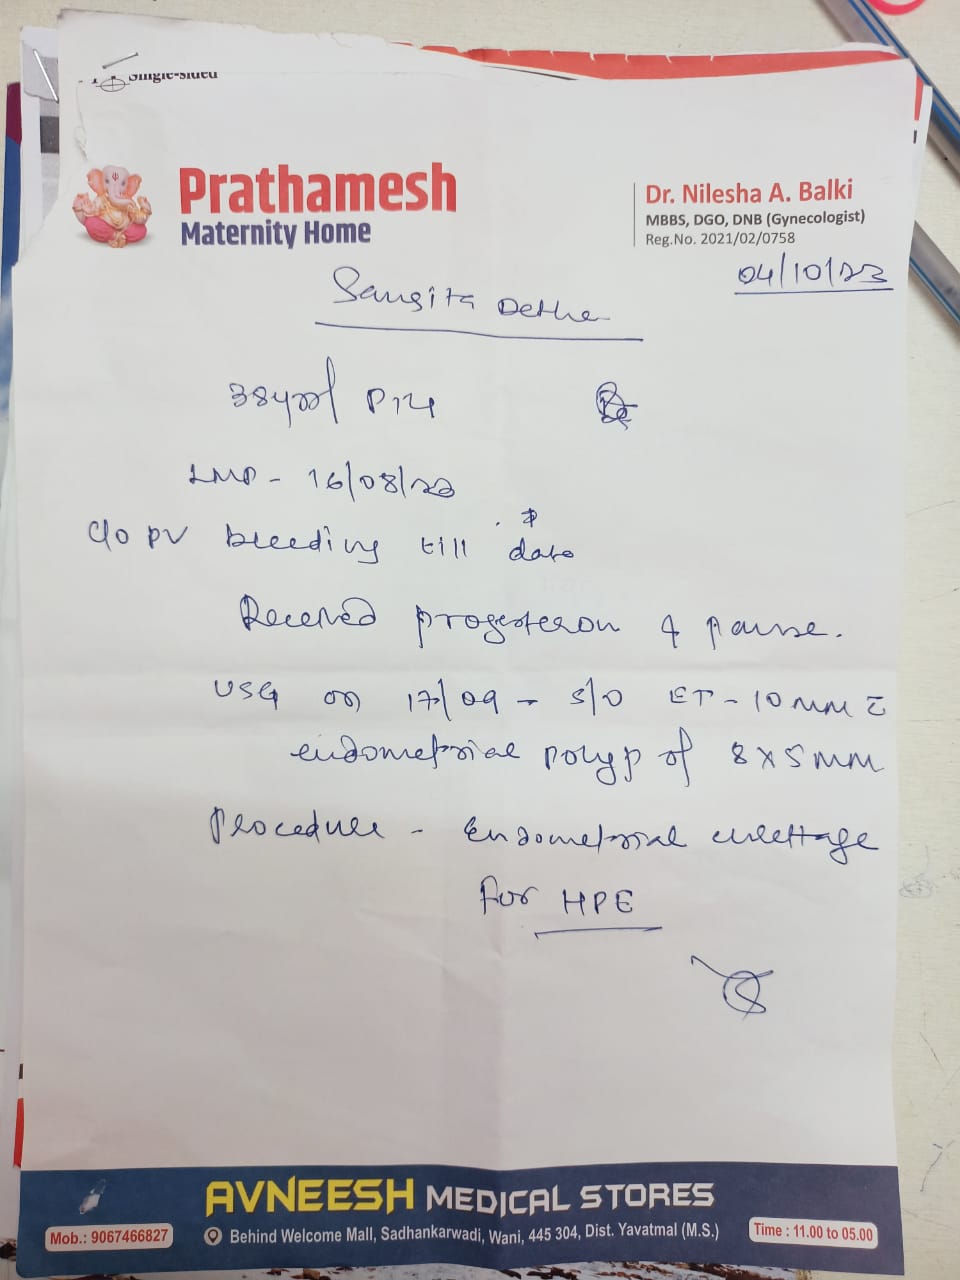 Single-sided
Prathamesh
Maternity Home
Dr. Nilesha A. Balki
MBBS, DGO, DNB (Gynecologist)
Reg.No. 2021/02/0758
04/10/23
Sangita Dethe
38 yrs P1L4
LMP - 16/08/23
c/o PV bleeding till date
Received progesteron & pause.
USG on 17/09 - s/o ET - 10 MM c̄
endometrial polyp of 8 x 5 MM
Procedure - Endometrial curettage
for HPE
AVNEESH MEDICAL STORES
Mob.: 9067466827
Behind Welcome Mall, Sadhankarwadi, Wani, 445 304, Dist. Yavatmal (M.S.)
Time : 11.00 to 05.00